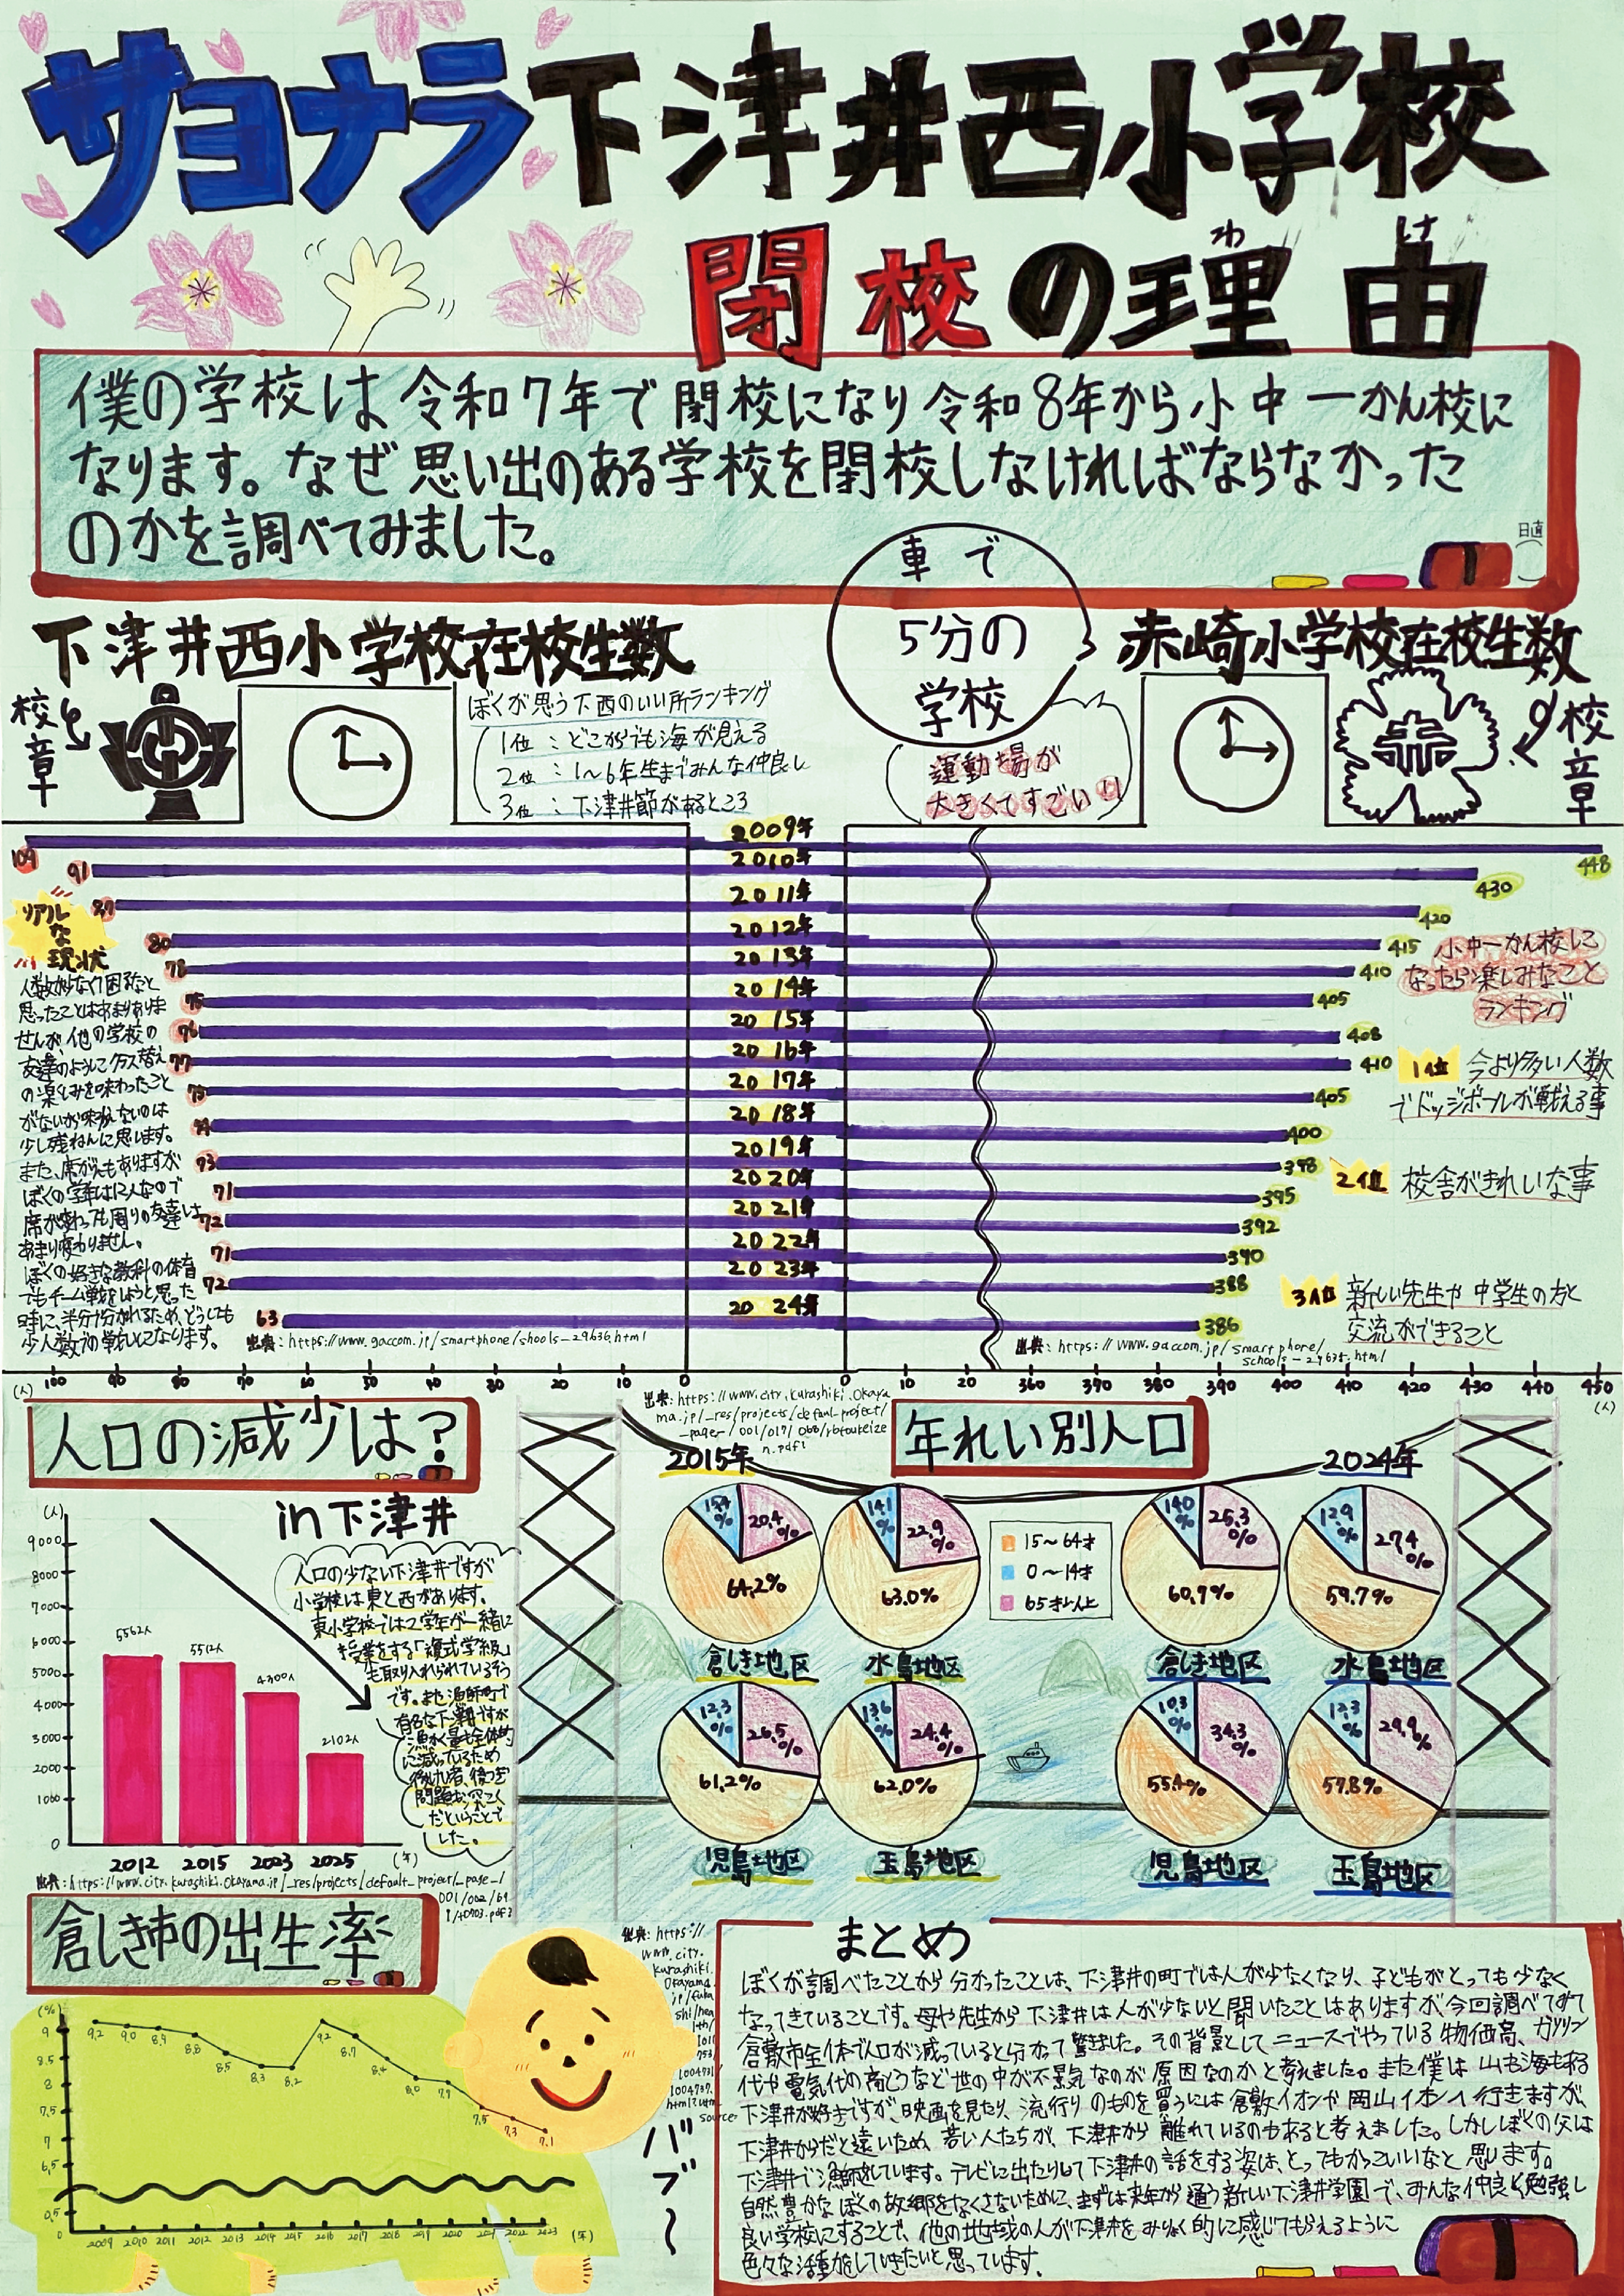 サヨナラ下津井西小学校
閉校の理由
わけ
僕の学校は令和7年で閉校になり令和8年から小中一かん校に
なります。なぜ思い出のある学校を閉校しなければならなかった
のかを調べてみました。
日直
下津井西小学校在校生数
車で
5分の
学校
赤崎小学校在校生数
校章
ぼくが思う下西のいい所ランキング
1位：どこからでも海が見える
2位：1〜6年生までみんな仲良し
3位：下津井節があるところ
運動場が
大きくてすごい!!
校章
2009年
109
448
2010年
91
430
2011年
87
420
2012年
80
415
2013年
78
410
2014年
75
405
2015年
76
408
2016年
77
410
2017年
75
405
2018年
74
400
2019年
73
398
2020年
71
395
2021年
72
392
2022年
71
390
2023年
72
388
2024年
63
386
リアル
な
現状
人数が少なくて困るなと
思ったことはあまりありま
せんが、他の学校の
友達のようにクラス替え
の楽しみを味わったこと
がないが味わえないのは
少し残ねんに思います。
また、席がえもありますが
ぼくの学年は12人なので
席が変わっても周りの友達は
あまり変わりません。
ぼくの好きな教科の体育
でもチーム戦をしようと思った
時に、半分に分かれるため、どうしても
少人数での戦いになります。
小中一かん校に
なったら楽しみなこと
ランキング
1位 今より多い人数
でドッジボールが戦える事
2位 校舎がきれいな事
3位 新しい先生や中学生の方と
交流ができること
出典：https://www.gaccom.jp/smartphone/shools-29636.html
出典：https://www.gaccom.jp/smartphone/
schools-29635.html
(人) 100 90 80 70 60 50 40 30 20 10 0
0 10 20 360 370 380 390 400 410 420 430 440 450
(人)
人口の減少は？
in下津井
(人)
9000
8000
7000
6000
5000
4000
3000
2000
1000
0
5562人
5512人
4300人
2102人
2012 2015 2023 2025 (年)
人口の少ない下津井ですが
小学校は東と西があります。
東小学校では2学年が一緒に
授業をする「複式学級」
も取り入れられているそう
です。また漁師町で
有名な下津井ですが
漁かく量も全体的
に減っているため
後つぎ
問題も深こく
だということで
した。
出典：https://www.city.kurashiki.okayama.jp/_res/projects/default_project/_page_/
出典：https://www.city.kurashiki.okaya
ma.jp/_res/projects/defaul_project/
年れい別人口
2015年
2024年
15〜64才
0〜14才
65才以上
15.4%
20.4%
64.2%
倉しき地区
14.1%
22.9%
63.0%
水島地区
12.3%
26.5%
61.2%
児島地区
13.6%
24.4%
62.0%
玉島地区
14.0%
25.3%
60.7%
倉しき地区
12.9%
27.4%
59.7%
水島地区
10.3%
34.3%
55.4%
児島地区
12.3%
29.9%
57.8%
玉島地区
倉しき市の出生率
(%)
9
8.5
8
7.5
7
6.5
0.5
0
9.2 9.0 8.9 8.8 8.5 8.3 8.2 9.2 8.7 8.4 8.0 7.9 7.5 7.3 7.1
2009 2010 2011 2012 2013 2014 2015 2016 2017 2018 2019 2020 2021 2022 2023 (年)
バブ〜
まとめ
ぼくが調べたことから分かったことは、下津井の町では人が少なくなり、子どもがとっても少なく
なってきていることです。母や先生から下津井は人が少ないと聞いたことはありますが、今回調べてみて
倉敷市全体で人口が減っていると分かって驚きました。その背景としてニュースでやっている物価高、ガソリン
代や電気代の高とうなど世の中が不景気なのが原因なのかと考えました。また僕は山も海もある
下津井が好きですが、映画を見たり、流行りのものを買うには倉敷イオンや岡山イオンへ行きますが、
下津井からだと遠いため、若い人たちが、下津井から離れているのもあると考えました。しかしぼくの父は
下津井で漁師をしています。テレビに出たりして下津井の話をする姿は、とってもかっこいいなと思います。
自然豊かなぼくの故郷をなくさないために、まずは来年から通う新しい下津井学園で、みんな仲良く勉強し
良い学校にすることで、他の地域の人が下津井をみりょく的に感じてもらえるように
色々な活動をしていきたいと思っています。